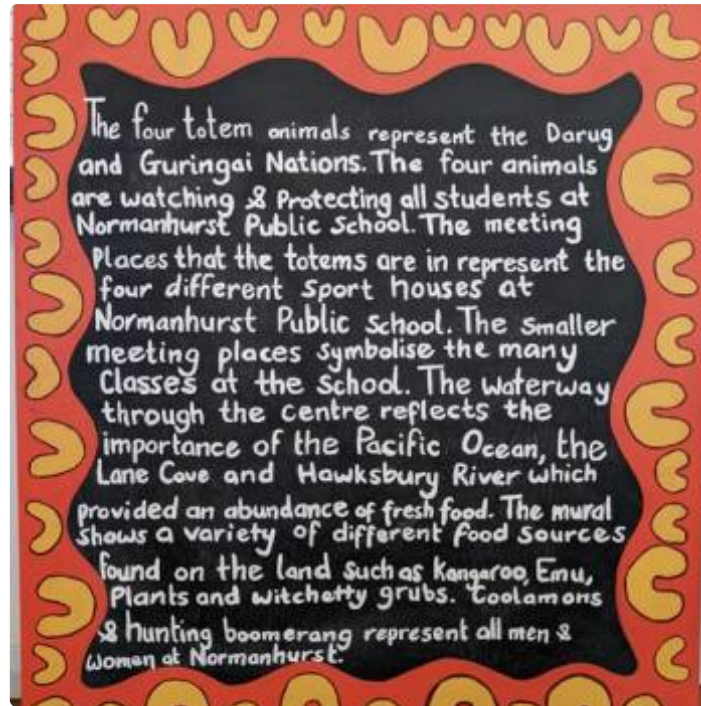 The four totem animals represent the Darug
and Guringai Nations. The four animals
are watching & Protecting all students at
Normanhurst Public School. The meeting
Places that the totems are in represent the
four different sport houses at
Normanhurst Public School. The smaller
meeting places symbolise the many
Classes at the School. The waterway
through the centre reflects the
importance of the Pacific Ocean, the
Lane Cove and Hawksbury River which
provided an abundance of fresh food. The mural
shows a variety of different food sources
found on the land such as Kangaroo, Emu,
Plants and witchetty grubs. Coolamons
& hunting boomerang represent all men &
women at Normanhurst.